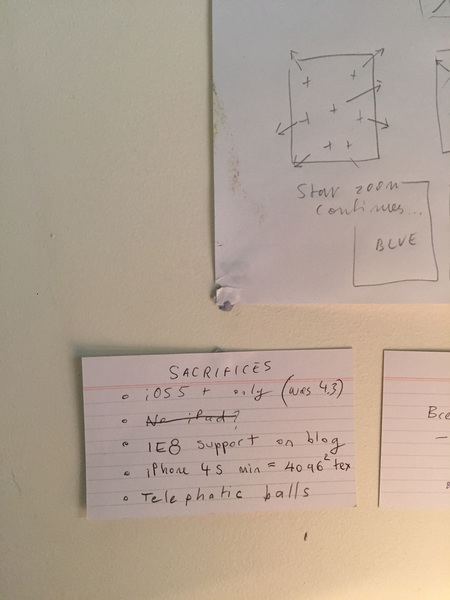 Star zoom
continues...
BLUE
SACRIFICES
iOS5 + only (was 4.3)
No iPad?
IE8 support on blog
iPhone 4S min = 4096² tex
Telephatic balls